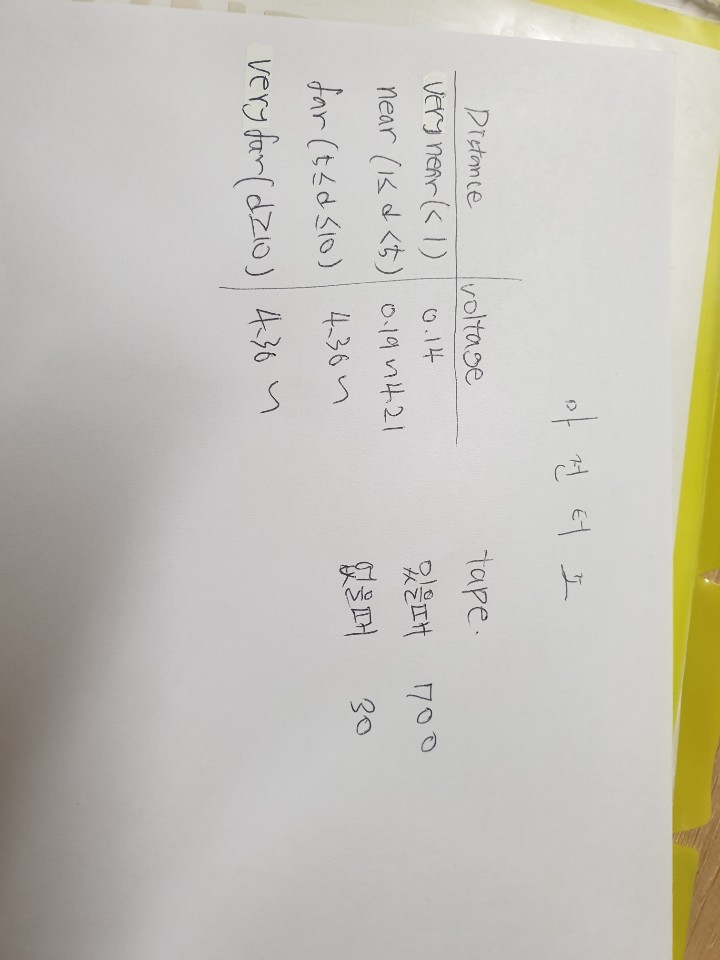 아 전 터 고
Distance voltage
very near (<1) 0.14
near (1≤ d <5) 0.19~4.21
far (5≤d≤10) 4.36~
very far (d≥10) 4.36~
tape.
있을때 700
없을때 30